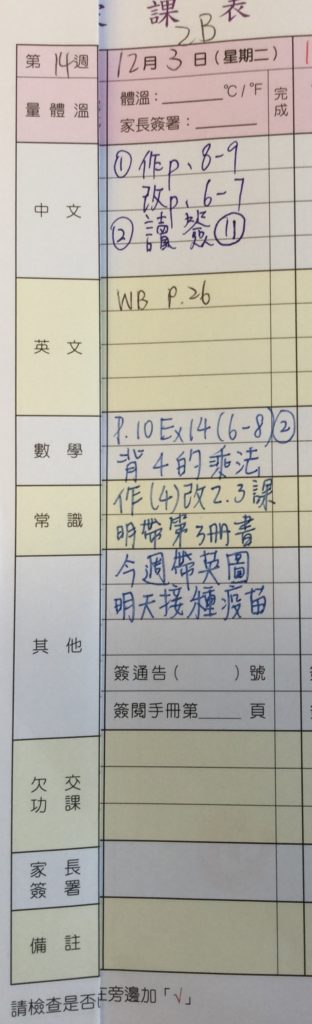 課表
2B
第14週 12月3日(星期二)
量體溫 體溫:______°C/°F 完成
家長簽署:______
中文 ①作p.8-9
改p.6-7
②讀簽⑪
英文 WB P.26
數學 P.10 Ex14(6-8)②
背4的乘法
常識 作(4)改2.3課
明帶第3冊書
其他 今週帶英圖
明天接種疫苗
簽通告( )號
簽閱手冊第____頁
欠交功課
家長簽署
備註
請檢查是否 旁邊加「√」